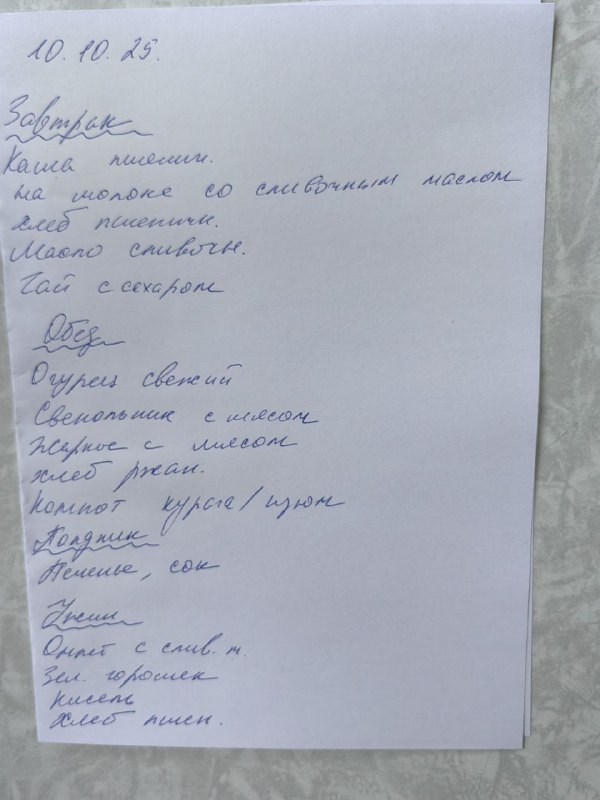 10.10.25.
Завтрак
Каша пшенич.
на молоке со сливочным маслом
хлеб пшеничн.
Масло сливочн.
Чай с сахаром
Обед
Огурец свежий
Свекольник с мясом
Жаркое с мясом
хлеб ржан.
Компот курага/изюм
Полдник
Печенье, сок
Ужин
Омлет с слив. м.
Зел. горошек
кисель
хлеб пшен.